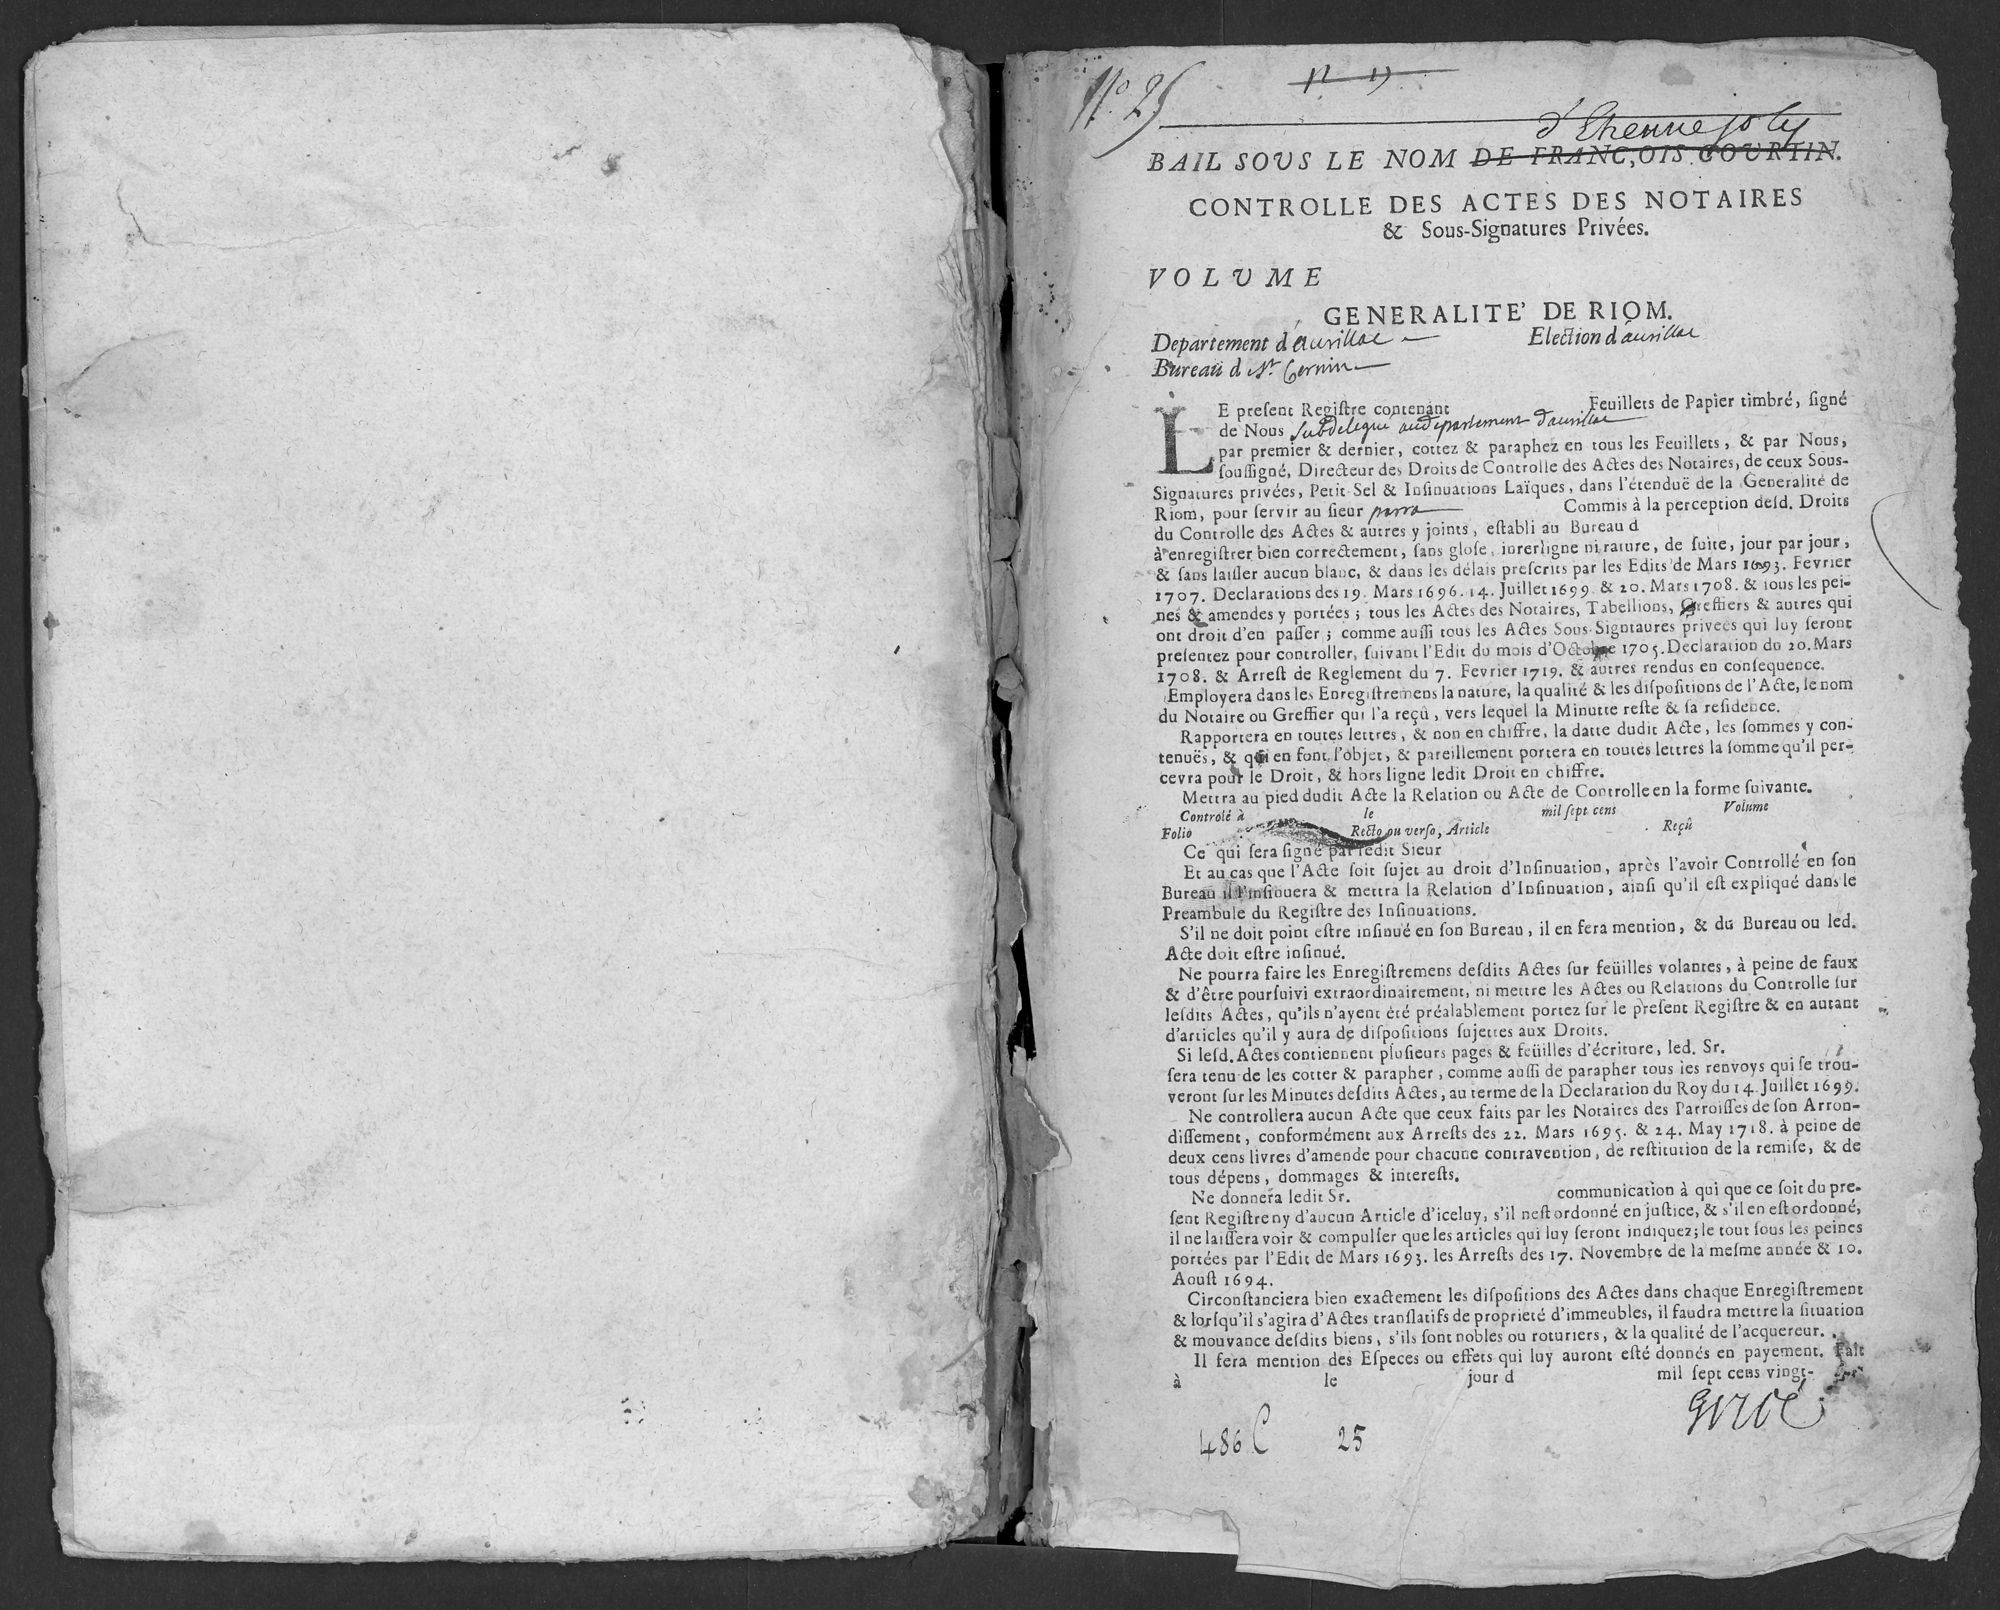 N.º 25
d'Etienne joly
BAIL SOUS LE NOM DE FRANC,OIS COURTIN.
CONTROLLE DES ACTES DES NOTAIRES
& Sous-Signatures Privées.
VOLUME
GENERALITE' DE RIOM.
Departement d'aurillac Election d'aurillac
Bureau d St Cernin
LE preſent Regiſtre contenant Feuillets de Papier timbré, ſigné
de Nous subdelegue audepartement d'aurillac
par premier & dernier, cottez & paraphez en tous les Feuillets, & par Nous,
ſouſſigné, Directeur des Droits de Controlle des Actes des Notaires, de ceux Sous-
Signatures privées, Petit Sel & Inſinuations Laïques, dans l'étenduë de la Generalité de
Riom, pour ſervir au ſieur parra Commis à la perception deſd. Droits
du Controlle des Actes & autres y joints, eſtabli au Bureau d
à enregiſtrer bien correctement, ſans gloſe, inrerligne ni rature, de ſuite, jour par jour,
& ſans laiſſer aucun blanc, & dans les délais preſcrits par les Edits de Mars 1693. Fevrier
1707. Declarations des 19. Mars 1696. 14. Juillet 1699. & 20. Mars 1708. & tous les pei-
nes & amendes y portées; tous les Actes des Notaires, Tabellions, Greffiers & autres qui
ont droit d'en paſſer; comme auſſi tous les Actes Sous-Signtaures privées qui luy ſeront
preſentez pour controller, ſuivant l'Edit du mois d'Octobre 1705. Declaration du 20. Mars
1708. & Arreſt de Reglement du 7. Fevrier 1719. & autres rendus en conſequence.
Employera dans les Enregiſtremens la nature, la qualité & les diſpoſitions de l'Acte, le nom
du Notaire ou Greffier qui l'a reçû, vers lequel la Minutte reſte & ſa reſidence.
Rapportera en toutes lettres, & non en chiffre, la datte dudit Acte, les ſommes y con-
tenuës, & qui en font l'objet, & pareillement portera en toutes lettres la ſomme qu'il per-
cevra pour le Droit, & hors ligne ledit Droit en chiffre.
Mettra au pied dudit Acte la Relation ou Acte de Controlle en la forme ſuivante.
Controlé à le mil ſept cens Volume
Folio Recto ou verſo, Article Reçû
Ce qui ſera ſigné par ledit Sieur
Et au cas que l'Acte ſoit ſujet au droit d'Inſinuation, après l'avoir Controllé en ſon
Bureau il l'inſinuera & mettra la Relation d'Inſinuation, ainſi qu'il eſt expliqué dans le
Preambule du Regiſtre des Inſinuations.
S'il ne doit point eſtre inſinué en ſon Bureau, il en fera mention, & du Bureau ou led.
Acte doit eſtre inſinué.
Ne pourra faire les Enregiſtremens deſdits Actes ſur feüilles volantes, à peine de faux
& d'être pourſuivi extraordinairement, ni mettre les Actes ou Relations du Controlle ſur
leſdits Actes, qu'ils n'ayent été préalablement portez ſur le preſent Regiſtre & en autant
d'articles qu'il y aura de diſpoſitions ſujettes aux Droits.
Si leſd. Actes contiennent pluſieurs pages & feüilles d'écriture, led. Sr.
ſera tenu de les cotter & parapher, comme auſſi de parapher tous les renvoys qui ſe trou-
veront ſur les Minutes deſdits Actes, au terme de la Declaration du Roy du 14. Juillet 1699.
Ne controllera aucun Acte que ceux faits par les Notaires des Parroiſſes de ſon Arron-
diſſement, conformément aux Arreſts des 22. Mars 1695. & 24. May 1718. à peine de
deux cens livres d'amende pour chacune contravention, de reſtitution de la remiſe, & de
tous dépens, dommages & intereſts.
Ne donnera ledit Sr. communication à qui que ce ſoit du pre-
ſent Regiſtre ny d'aucun Article d'iceluy, s'il neſt ordonné en juſtice, & s'il en eſt ordonné,
il ne laiſſera voir & compulſer que les articles qui luy ſeront indiquez; le tout ſous les peines
portées par l'Edit de Mars 1693. les Arreſts des 17. Novembre de la meſme année & 10.
Aouſt 1694.
Circonſtanciera bien exactement les diſpoſitions des Actes dans chaque Enregiſtrement
& lorſqu'il s'agira d'Actes tranſlatifs de proprieté d'immeubles, il faudra mettre la ſituation
& mouvance deſdits biens, s'ils ſont nobles ou roturiers, & la qualité de l'acquereur.
Il fera mention des Eſpeces ou effets qui luy auront eſté donnés en payement. Fait
à le jour d mil ſept cens vingt-
486 C 25